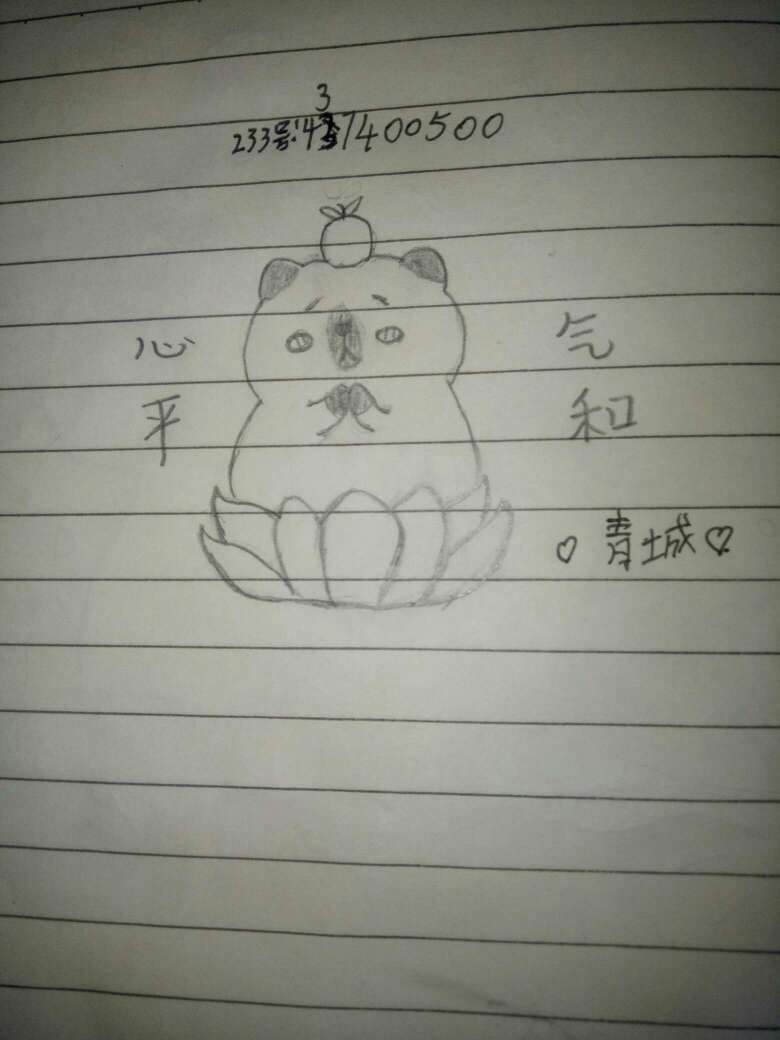 233号:437400500
心 气
平 和
♡ 青城 ♡